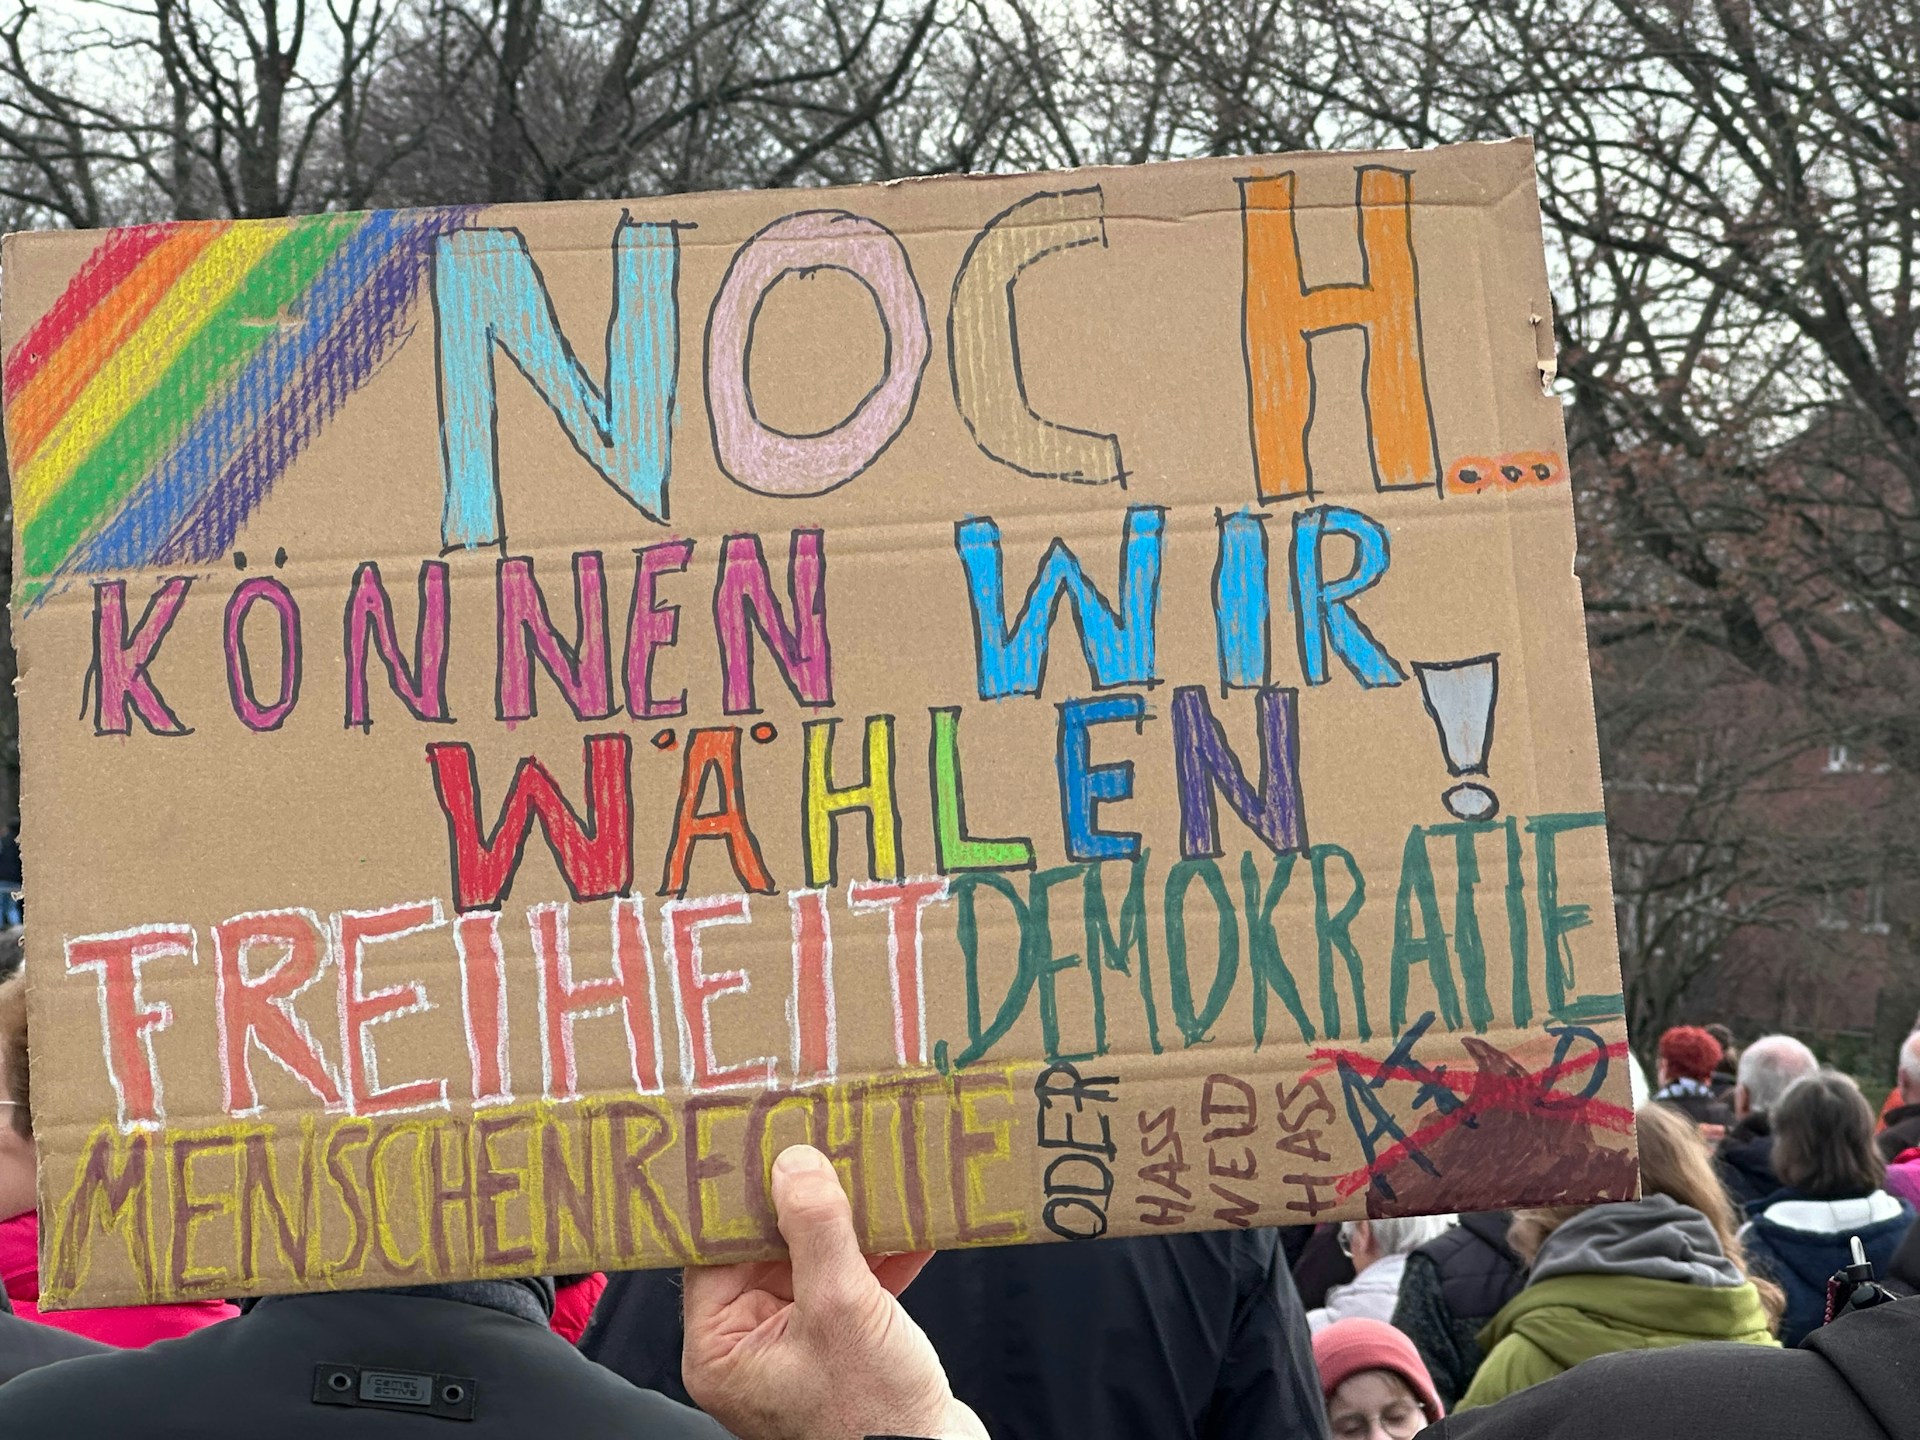 NOCH...
KÖNNEN WIR
WÄHLEN!
FREIHEIT, DEMOKRATIE
MENSCHENRECHTE
ODER
HASS
NEID
HASS
AFD
camel
active